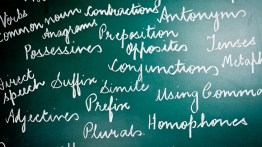 Verbs
common noun Contractions Antonyms
Anagrams
Possessives Preposition
Opposites Tenses
Conjunctions
Direct speech Suffix Simile
Prefix Using Comma
Adjectives
Plurals Homophones